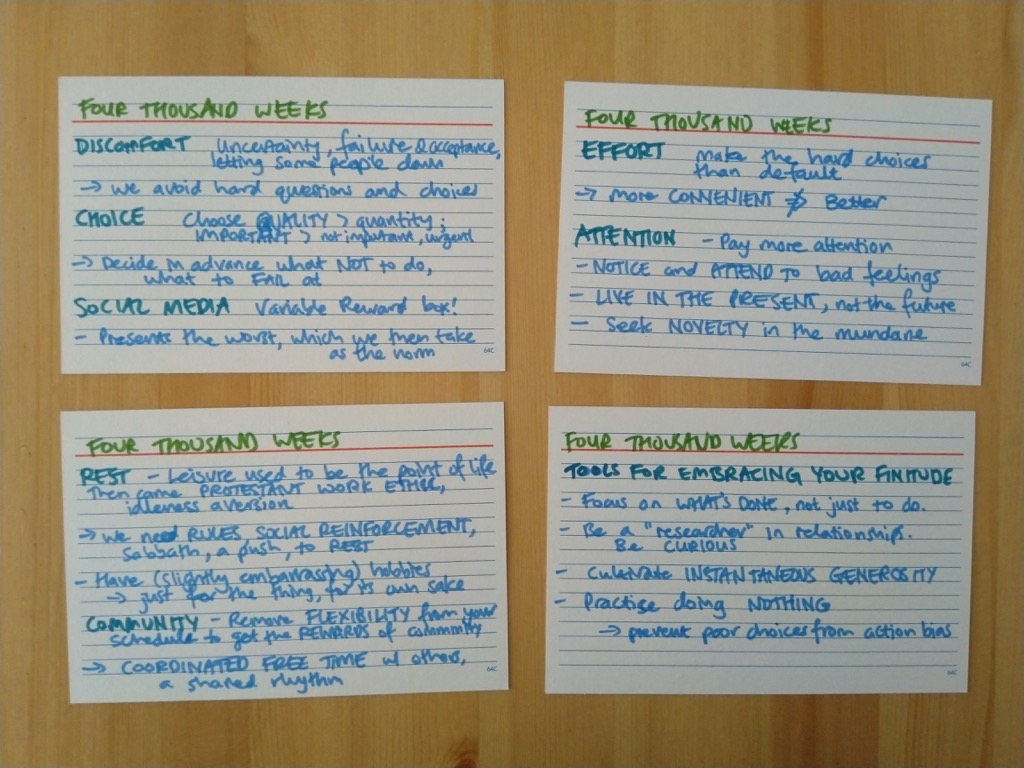 FOUR THOUSAND WEEKS
DISCOMFORT Uncertainty, failure & acceptance,
letting some people down
→ we avoid hard questions and choices
CHOICE Choose QUALITY > quantity;
IMPORTANT > not important, urgent
→ Decide in advance what NOT to do,
what to FAIL at
SOCIAL MEDIA Variable Reward box!
- Presents the worst, which we then take
as the norm
64C
FOUR THOUSAND WEEKS
EFFORT make the hard choices
than default
→ More CONVENIENT ≠> Better
ATTENTION - Pay more attention
- NOTICE and ATTEND TO bad feelings
- LIVE IN THE PRESENT, not the future
- Seek NOVELTY in the mundane
64C
FOUR THOUSAND WEEKS
REST - Leisure used to be the point of life
Then came PROTESTANT WORK ETHIC,
idleness aversion
→ we need RULES, SOCIAL REINFORCEMENT,
Sabbath, a push, to REST
- Have (slightly embarrassing) hobbies
→ just for the thing, for its own sake
COMMUNITY - Remove FLEXIBILITY from your
schedule to get the REWARDS of community
→ COORDINATED FREE TIME w/ others,
a shared rhythm
64C
FOUR THOUSAND WEEKS
TOOLS FOR EMBRACING YOUR FINITUDE
- Focus on WHAT'S DONE, not just to do.
- Be a "researcher" in relationships.
Be CURIOUS
- Cultivate INSTANTANEOUS GENEROSITY
- Practise doing NOTHING
→ prevent poor choices from action bias
64C